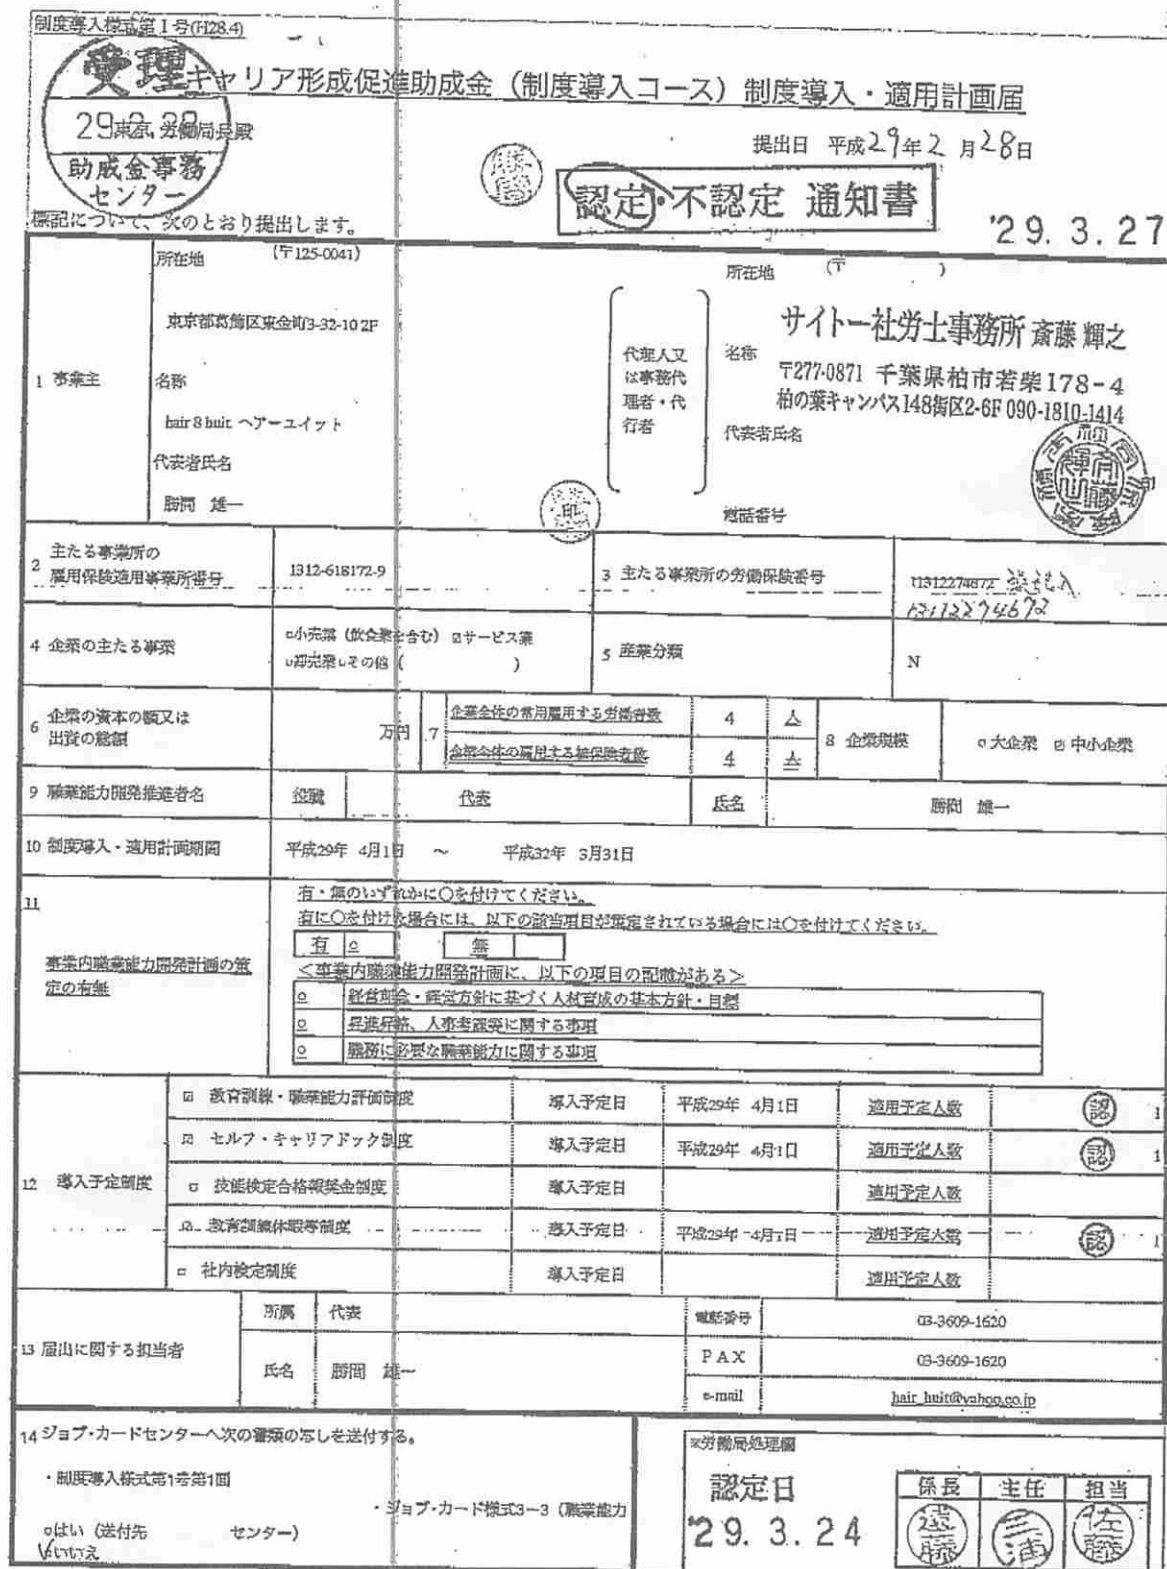 制度導入様式第1号(H28.4)
受理
キャリア形成促進助成金（制度導入コース）制度導入・適用計画届
東京 労働局長殿
助成金事務
センター
提出日 平成29年2月28日
認定・不認定 通知書
'29. 3. 27
標記について、次のとおり提出します。
1 事業主
所在地 (〒125-0041)
東京都葛飾区東金町3-32-10 2F
名称
hair 8 huit ヘアーユイット
代表者氏名
勝間 雄一
印
代理人又は事務代理者・代行者
所在地 (〒 )
名称
サイトー社労士事務所 斎藤 輝之
〒277-0871 千葉県柏市若柴178-4
柏の葉キャンパス148街区2-6F 090-1810-1414
代表者氏名
印
電話番号
2 主たる事業所の雇用保険適用事業所番号
1312-618172-9
3 主たる事業所の労働保険番号
4 企業の主たる事業
□小売業（飲食業を含む）☑サービス業
□卸売業□その他（ ）
5 産業分類
N
6 企業の資本の額又は出資の総額
万円
7 企業全体の常用雇用する労働者数 4 人
企業全体の雇用する被保険者数 4 人
8 企業規模
□大企業 ☑中小企業
9 職業能力開発推進者名
役職 代表
氏名 勝間 雄一
10 制度導入・適用計画期間
平成29年 4月1日 ～ 平成32年 3月31日
11 事業内職業能力開発計画の策定の有無
有・無のいずれかに〇を付けてください。
有に〇を付けた場合には、以下の該当項目が策定されている場合には〇を付けてください。
有 ○ 無
＜事業内職業能力開発計画に、以下の項目の記載がある＞
○ 経営理念・経営方針に基づく人材育成の基本方針・目標
○ 昇進昇格、人事考課等に関する事項
○ 職務に必要な職業能力に関する事項
12 導入予定制度
☑ 教育訓練・職業能力評価制度 導入予定日 平成29年 4月1日 適用予定人数 認 1
☑ セルフ・キャリアドック制度 導入予定日 平成29年 4月1日 適用予定人数 認 1
□ 技能検定合格報奨金制度 導入予定日 適用予定人数
☑ 教育訓練休暇等制度 導入予定日 平成29年 4月1日 適用予定人数 認 1
□ 社内検定制度 導入予定日 適用予定人数
13 届出に関する担当者
所属 代表
氏名 勝間 雄一
電話番号 03-3609-1620
FAX 03-3609-1620
e-mail hair_huit@yahoo.co.jp
14 ジョブ・カードセンターへ次の書類の写しを送付する。
・制度導入様式第1号第1面
・ジョブ・カード様式3-3（職業能力
□はい（送付先 センター）
いいえ
※労働局処理欄
認定日
'29. 3. 24
係長 主任 担当
遠藤 三浦 佐藤